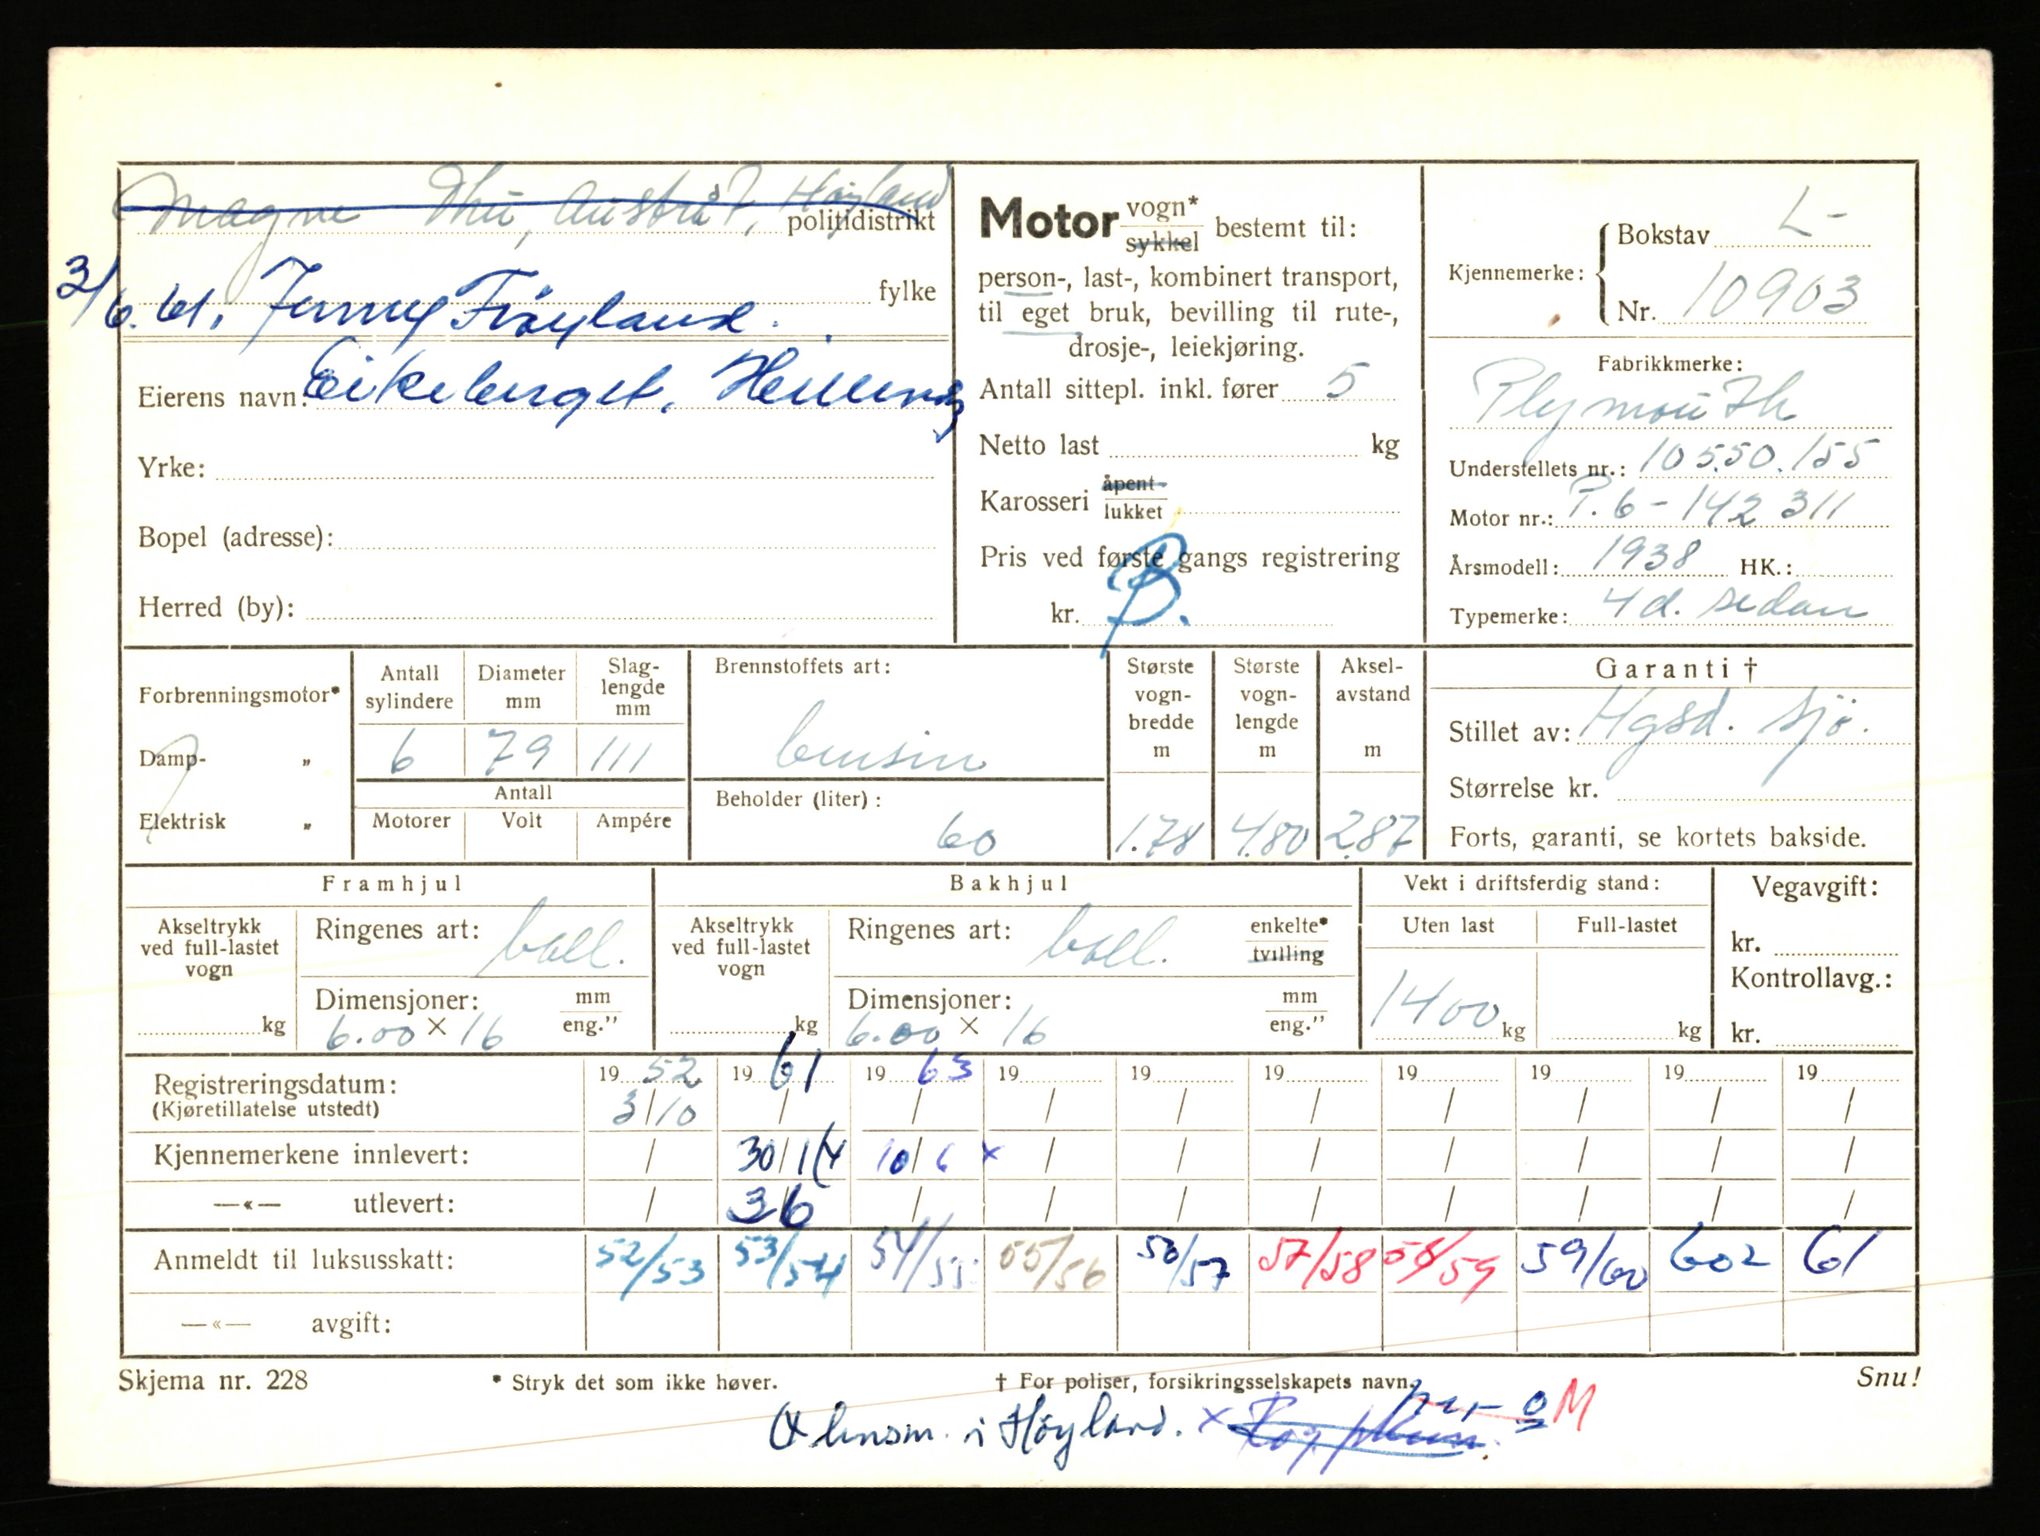 Magne Thu, Austråt, Høyland
politidistrikt
3/6.61. Jenny Frøyland.
fylke
Eierens navn: Eikeberget, Hellevåg
Yrke:
Bopel (adresse):
Herred (by):
Motor vogn* sykkel bestemt til:
person-, last-, kombinert transport,
til eget bruk, bevilling til rute-,
drosje-, leiekjøring.
Antall sittepl. inkl. fører 5
Netto last kg
Karosseri åpent lukket
Pris ved første gangs registrering
kr. B.
Kjennemerke: Bokstav L-
Nr. 10903
Fabrikkmerke:
Plymouth
Understellets nr.: 10550.155
Motor nr.: P.6-142311
Årsmodell: 1938 HK.:
Typemerke: 4d. sedan
Forbrenningsmotor*
Damp- „
Elektrisk „
Antall sylindere 6
Diameter mm 79
Slaglengde mm 111
Antall
Motorer Volt Ampére
Brennstoffets art:
bensin
Beholder (liter):
60
Største vogn-bredde m 1.78
Største vogn-lengde m 4.80
Aksel-avstand m 2.87
Garanti †
Stillet av: Hgsd. Sjø.
Størrelse kr.
Forts, garanti, se kortets bakside.
Framhjul
Akseltrykk ved full-lastet vogn kg
Ringenes art: ball.
Dimensjoner: mm eng.”
6.00 × 16
Bakhjul
Akseltrykk ved full-lastet vogn kg
Ringenes art: ball. enkelte* tvilling
Dimensjoner: mm eng.”
6.00 × 16
Vekt i driftsferdig stand:
Uten last Full-lastet
1400 kg kg
Vegavgift:
kr.
Kontrollavg.:
kr.
Registreringsdatum: 19 52 19 61 19 63 19 19 19 19 19 19 19
(Kjøretillatelse utstedt) 3/10 / / / / / / / / /
Kjennemerkene innlevert: / 30/1 10/6 × / / / / / / /
—«— utlevert: / 3/6 / / / / / / / /
Anmeldt til luksusskatt: 52/53 53/54 54/55 55/56 56/57 57/58 58/59 59/60 602 61
—«— avgift:
Skjema nr. 228 * Stryk det som ikke høver. † For poliser, forsikringsselskapets navn. Snu!
lensm. i Høyland. ×
M